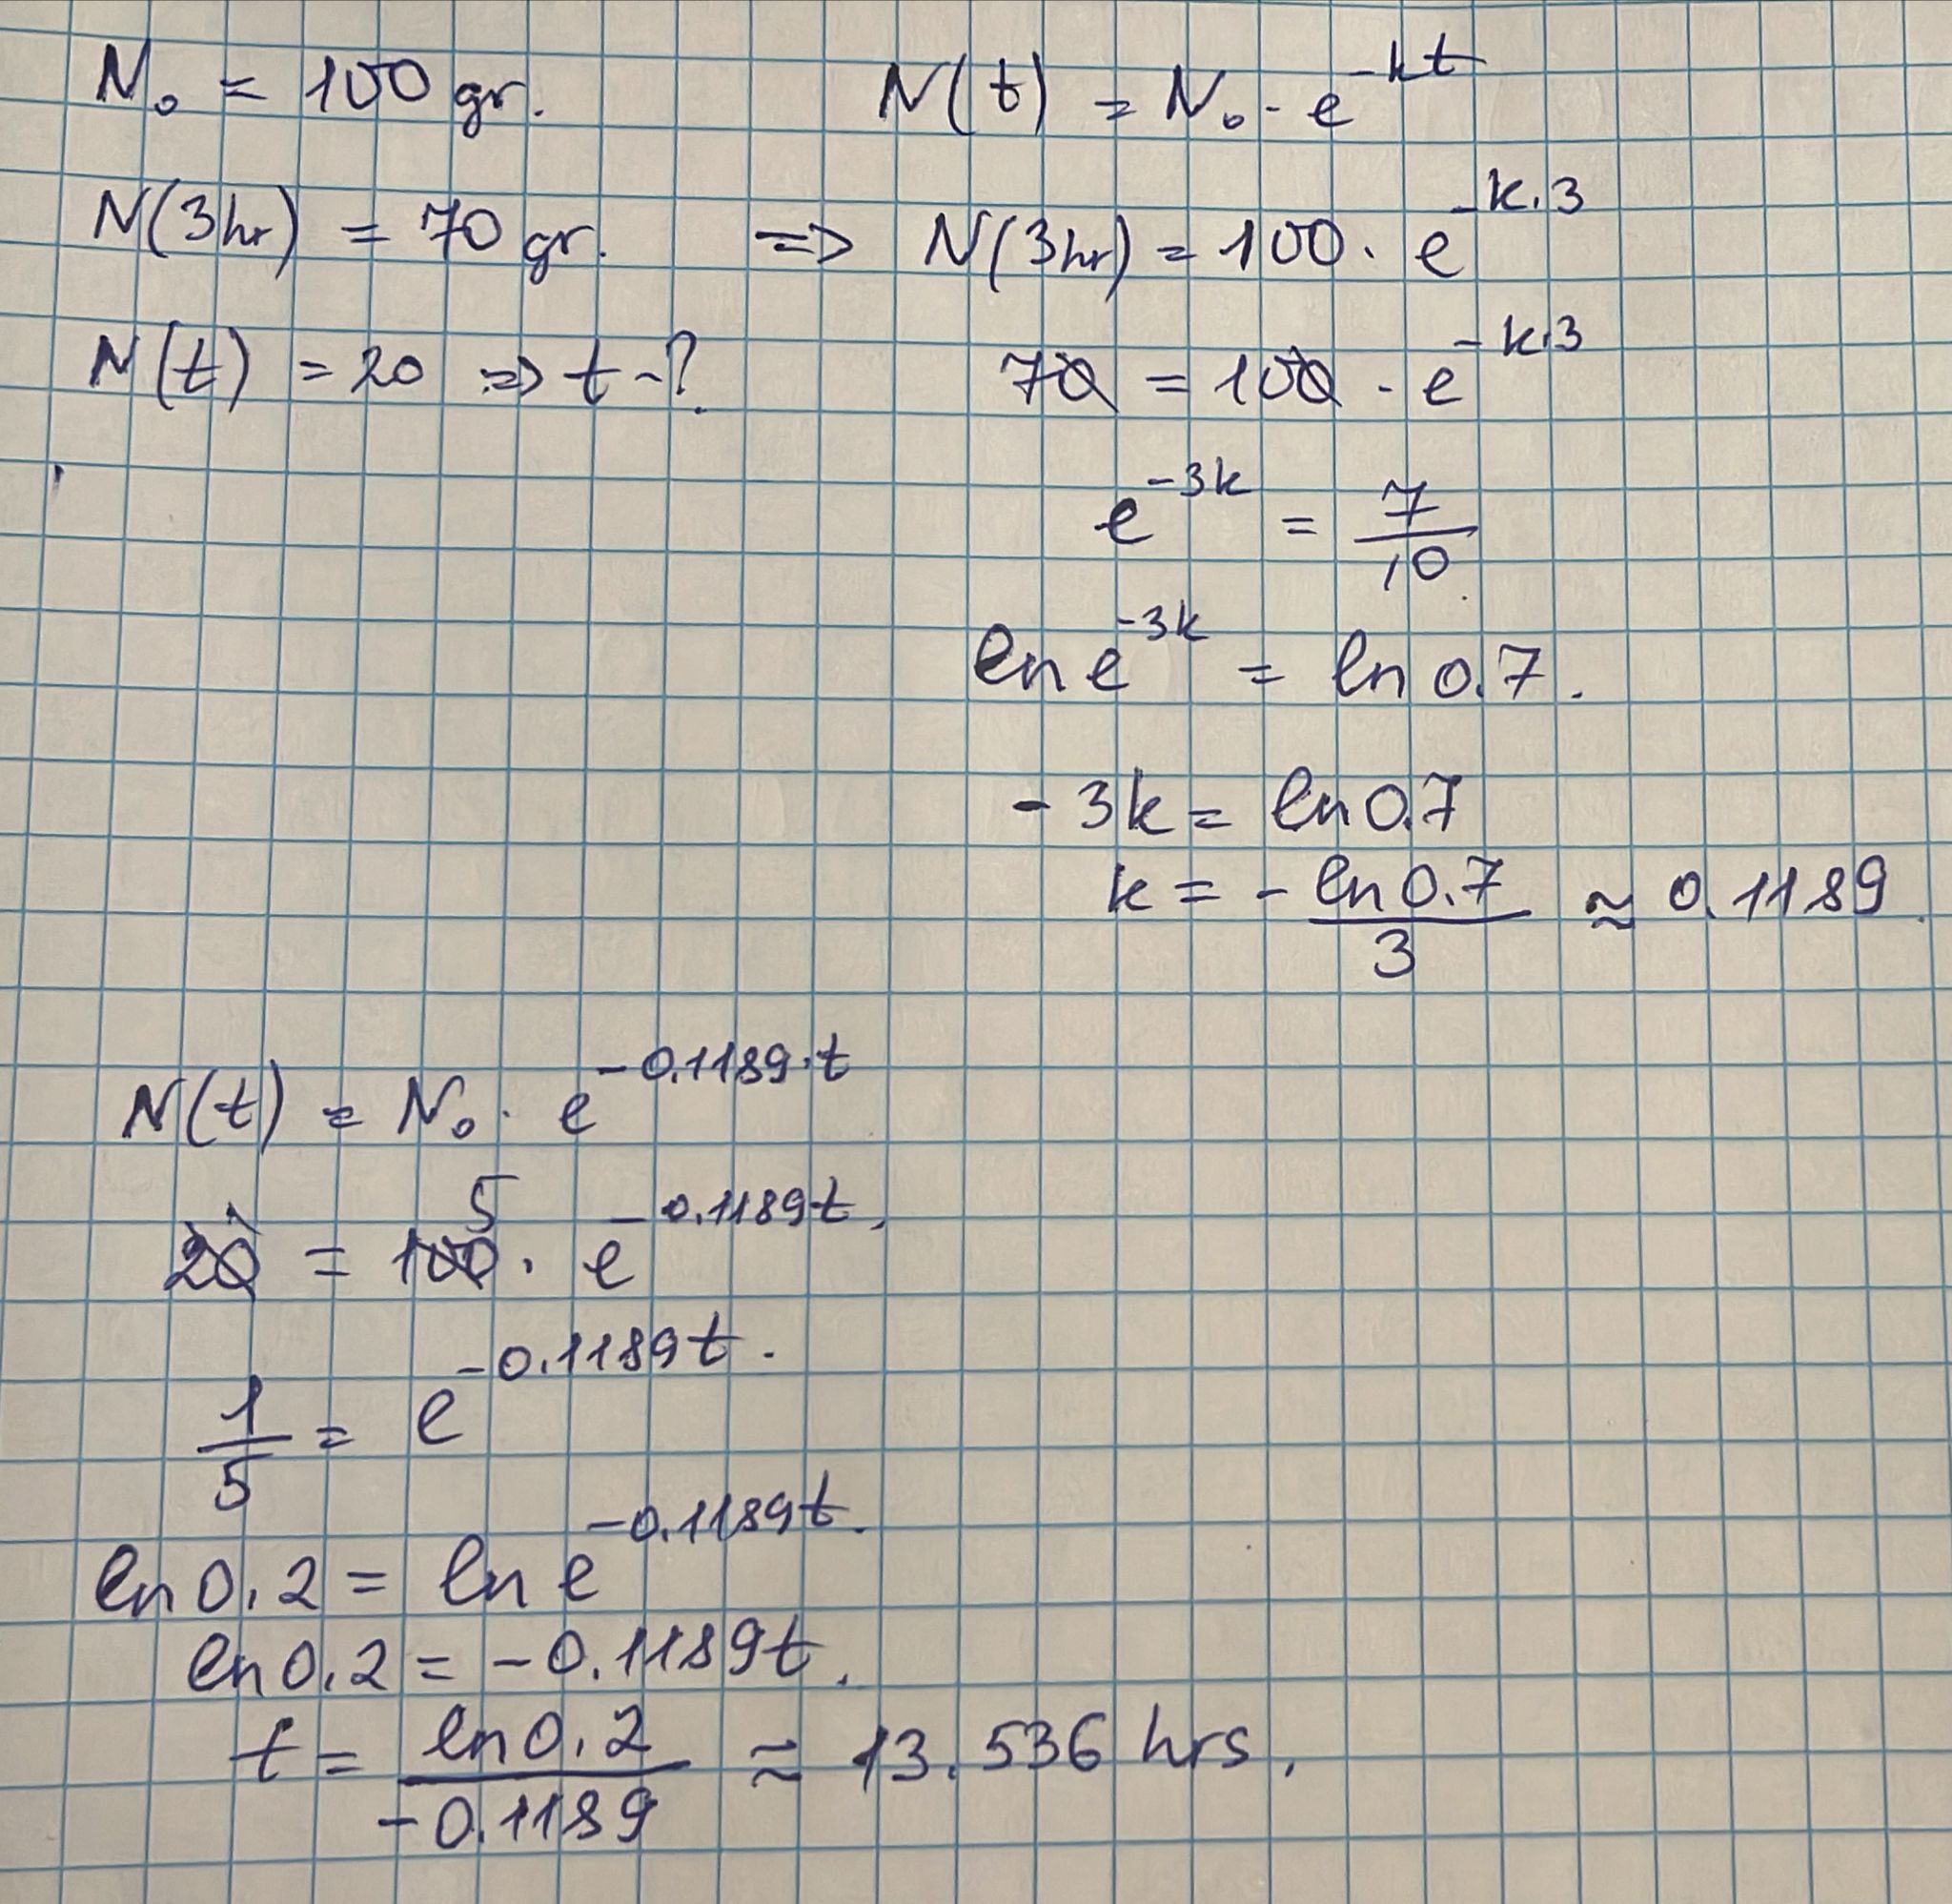 N₀ = 100 gr.
N(t) = N₀ · e^{-kt}
N(3hr) = 70 gr. => N(3hr) = 100 · e^{-k·3}
N(t) = 20 => t - ?
70 = 100 · e^{-k·3}
e^{-3k} = 7/10
ln e^{-3k} = ln 0.7.
-3k = ln 0.7
k = - ln 0.7 / 3 ≈ 0.1189.
N(t) = N₀ · e^{-0.1189·t}
5
20 = 100 · e^{-0.1189t}.
1/5 = e^{-0.1189t}.
ln 0.2 = ln e^{-0.1189t}.
ln 0.2 = -0.1189t.
t = ln 0.2 / -0.1189 ≈ 13.536 hrs.